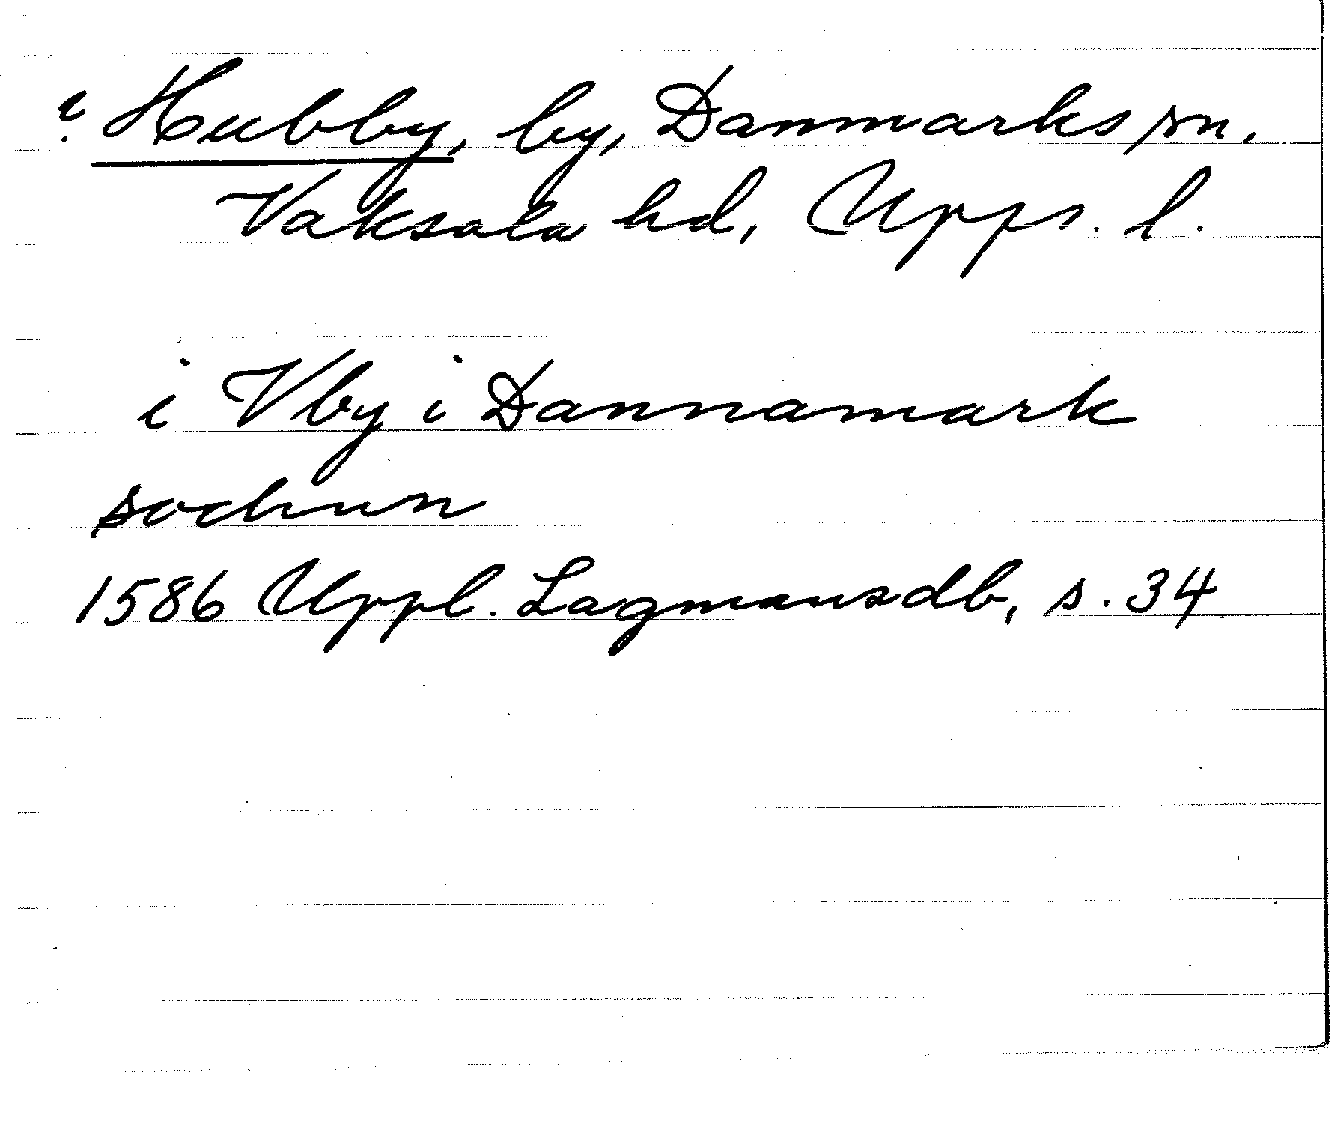 ? Hubby, by, Danmarks sn.
Vaksala hd, Upps. l.
i Vby i Dannamark
sochnn
1586 Uppl. Lagmansdb, s. 34